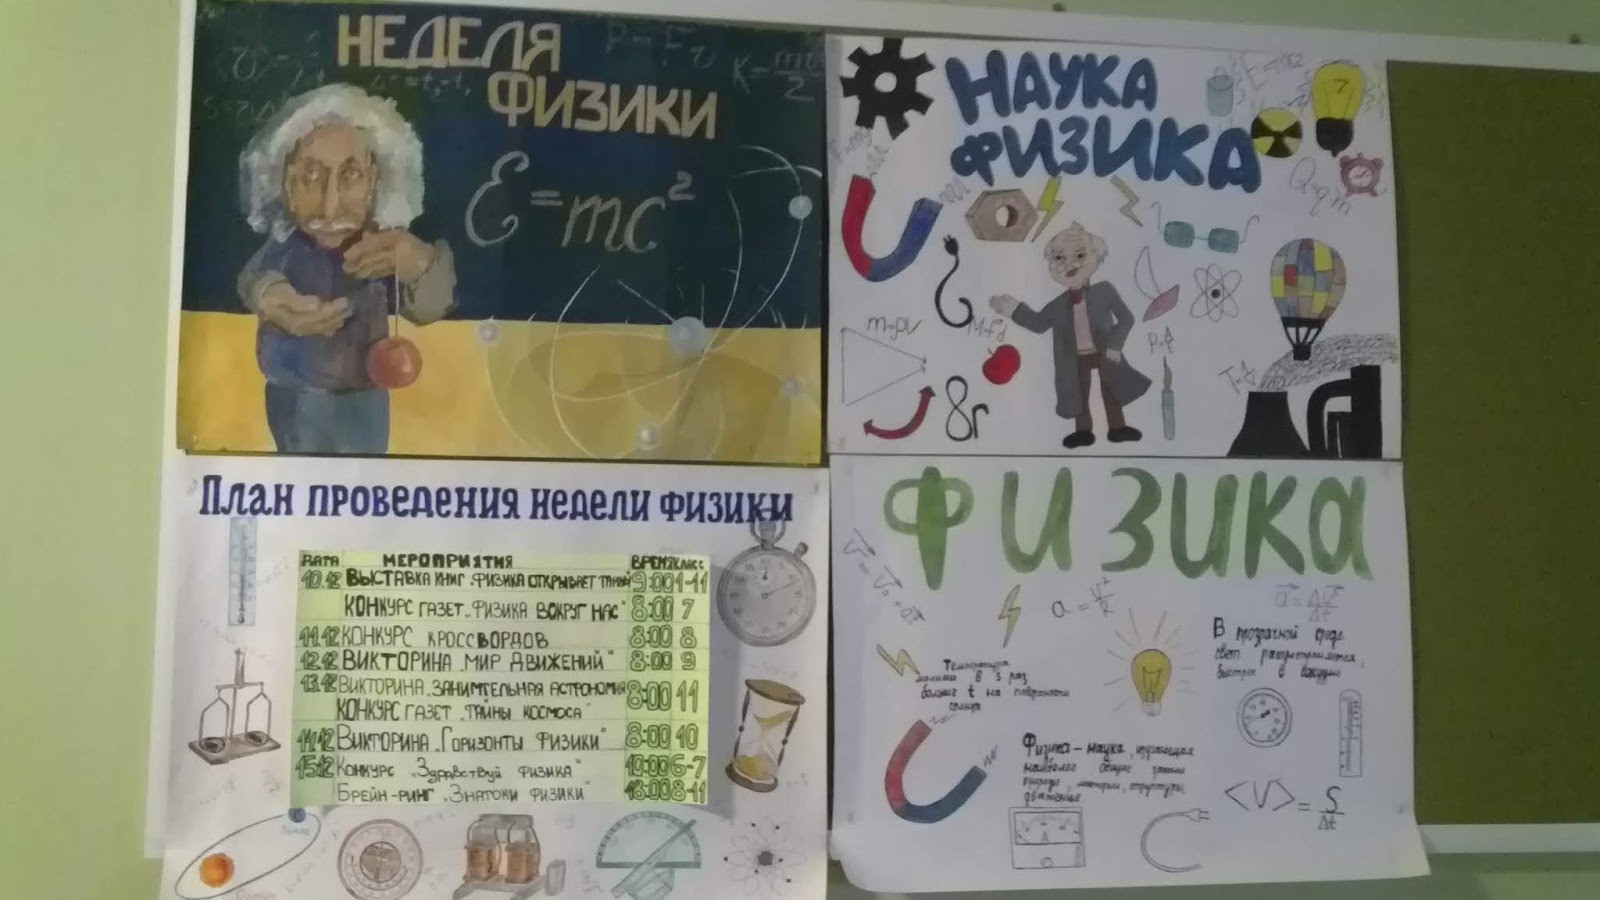 НЕДЕЛЯ
ФИЗИКИ
E=mc²
НАУКА
ФИЗИКА
Q=q·m
m=ρV
8г
План проведения недели физики
ДАТА МЕРОПРИЯТИЯ ВРЕМЯ КЛАСС
10.12 ВЫСТАВКА КНИГ „ФИЗИКА ОТКРЫВАЕТ 9:00 1-11
КОНКУРС ГАЗЕТ „ФИЗИКА ВОКРУГ НАС" 8:00 7
11.12 КОНКУРС КРОССВОРДОВ 8:00 8
12.12 ВИКТОРИНА „МИР ДВИЖЕНИЙ" 8:00 9
13.12 ВИКТОРИНА „ЗАНИМТЕЛЬНАЯ АСТРОНОМИЯ 8:00 11
КОНКУРС ГАЗЕТ „ТАЙНЫ КОСМОСА"
14.12 ВИКТОРИНА „ГОРИЗОНТЫ ФИЗИКИ" 8:00 10
15.12 КОНКУРС „ЗДРАВСТВУЙ ФИЗИКА" 10:00 6-7
БРЕЙН-РИНГ „ЗНАТОКИ ФИЗИКИ" 8-11
ФИЗИКА
a=V²/R
a=ΔV/Δt
Температура
молнии в 5 раз
больше t на поверхности
солнца
В прозрачной среде
свет распространяется,
быстрее в вакууме
Физика – наука, изучающая
наиболее общие законы
природы, материи, структуры,
движения
<V>=S/Δt
A